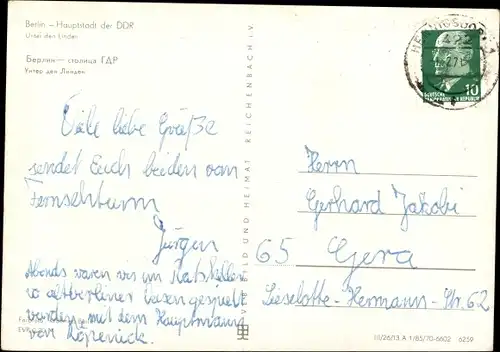 Berlin – Hauptstadt der DDR
Unter den Linden
Берлин— столица ГДР
Унтер ден Линден
Viele liebe Grüße
sendet Euch beiden vom
Fernsehturm
Jürgen
Abends waren wir im Ratskeller
wo altberliner Weisen gespielt
wurden mit dem Hauptmann
von Köpenick.
BILD UND HEIMAT REICHENBACH I. V.
10
Herrn
Gerhard Jakobi
65 Gera
Lieselotte-Hermann-Str. 62
III/26/13 A 1/85/70-6602 6259